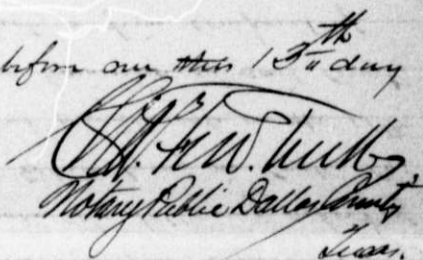 before me this 13th day
Notary Public Dallas County
Texas.